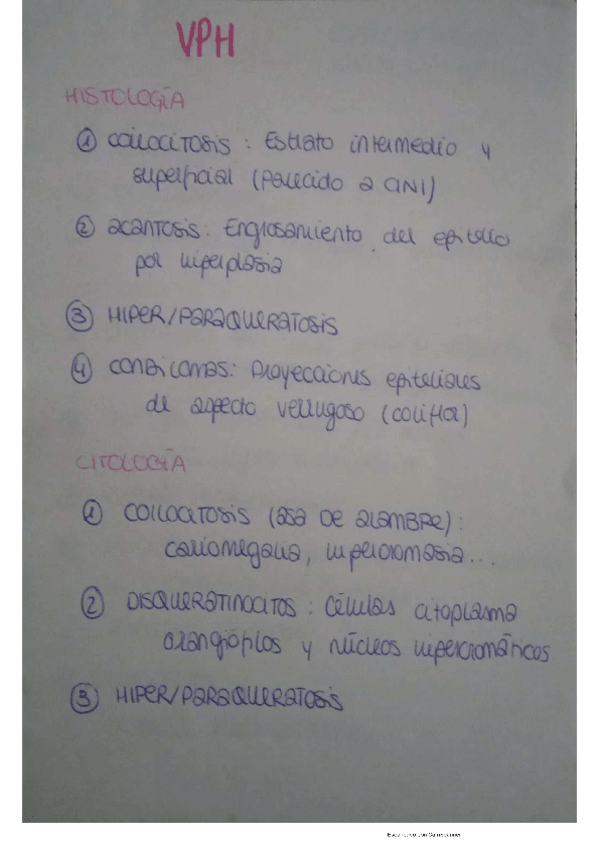 VPH
HISTOLOGÍA
① COILOCITOSIS : Estrato intermedio y
superficial (parecido a CINI)
② acantosis: Engrosamiento del epitelio
por hiperplasia
③ HIPER/PARAQUERATOSIS
④ CONDILOMAS: Proyecciones epiteliales
de aspecto verrugoso (coliflor)
CITOLOGÍA
① COILOCITOSIS (asa DE alambre) :
cariomegalia, hipercromasia...
② DISQUERATINOCITOS : Células citoplasma
orangiófilos y núcleos hipercromáticos
③ HIPER/PARAQUERATOSIS
Escaneado con CamScanner